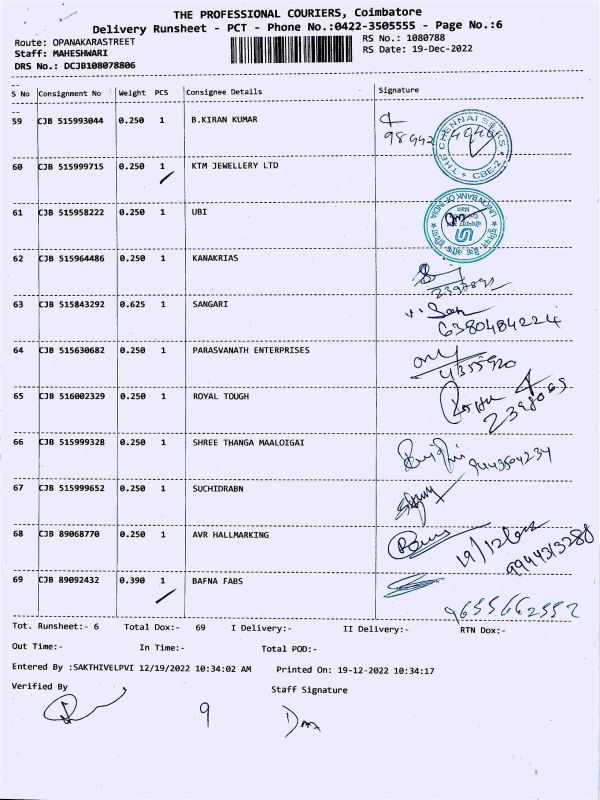 THE PROFESSIONAL COURIERS, Coimbatore
Delivery Runsheet - PCT - Phone No.:0422-3505555 - Page No.:6
Route: OPANAKARASTREET RS No.: 1080788
Staff: MAHESHWARI RS Date: 19-Dec-2022
DRS No.: DCJB108078806
S No Consignment No Weight PCS Consignee Details Signature
59 CJB 515993044 0.250 1 B.KIRAN KUMAR
THE CHENNAI SILKS
CBE-2
60 CJB 515999715 0.250 1 KTM JEWELLERY LTD
61 CJB 515958222 0.250 1 UBI
UNION BANK OF INDIA
62 CJB 515964486 0.250 1 KANAKRIAS
63 CJB 515843292 0.625 1 SANGARI
6380484224
64 CJB 515630682 0.250 1 PARASVANATH ENTERPRISES
4355920
65 CJB 516002329 0.250 1 ROYAL TOUGH
2398069
66 CJB 515999328 0.250 1 SHREE THANGA MAALOIGAI
9443504234
67 CJB 515999652 0.250 1 SUCHIDRABN
68 CJB 89068770 0.250 1 AVR HALLMARKING
9944313288
69 CJB 89092432 0.390 1 BAFNA FABS
9655662552
Tot. Runsheet:- 6 Total Dox:- 69 I Delivery:- II Delivery:- RTN Dox:-
Out Time:- In Time:- Total POD:-
Entered By :SAKTHIVELPVI 12/19/2022 10:34:02 AM Printed On: 19-12-2022 10:34:17
Verified By Staff Signature
9